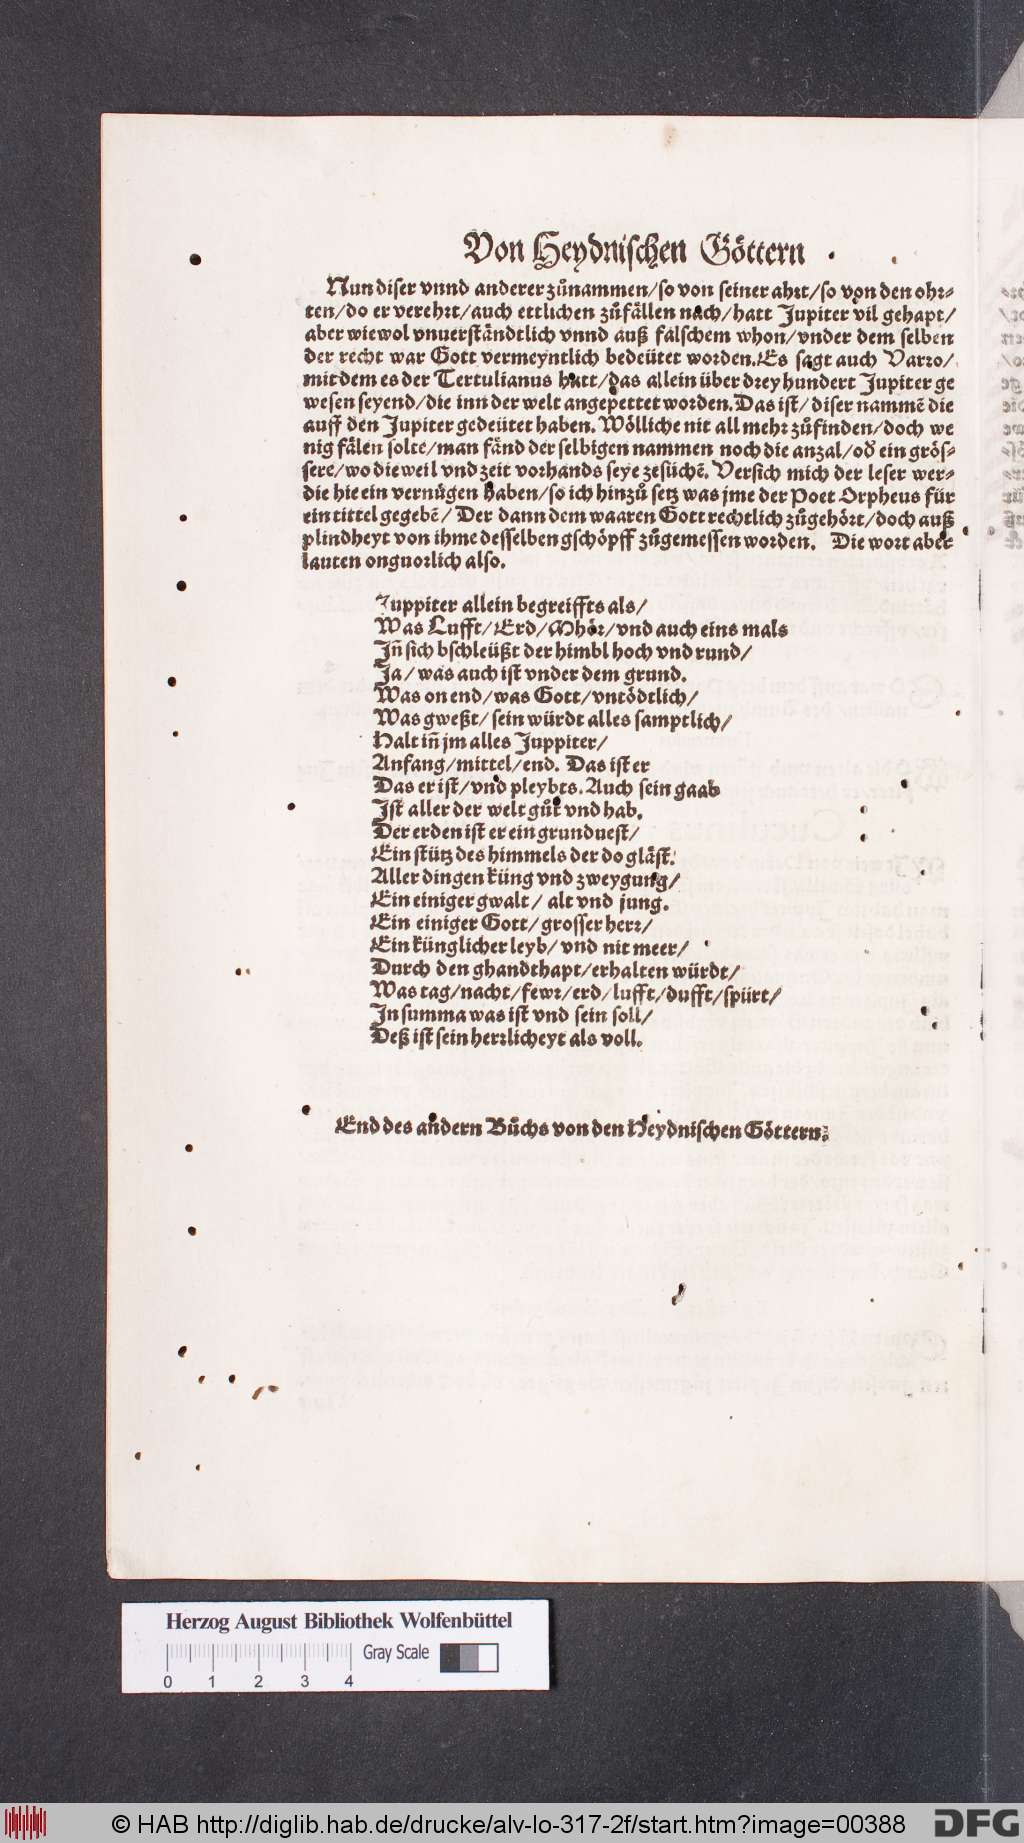 Von Heydnischen Göttern
Nun diser vnnd anderer zůnammen/so von seiner ahrt/so von den ohr⸗
ten/do er verehrt/auch ettlichen zůfällen nach/hatt Jupiter vil gehapt/
aber wiewol vnuerständtlich vnnd auß fälschem whon/vnder dem selben
der recht war Gott vermeyntlich bedeütet worden. Es sagt auch Varro/
mit dem es der Tertulianus hatt/das allein über drey hundert Jupiter ge
wesen seyend/die inn der welt angepettet worden. Das ist/ diser nammẽ die
auff den Jupiter gedeütet haben. Wölliche nit all mehr zůfinden/doch we
nig fälen solte/man fänd der selbigen nammen noch die anzal/oď ein grös⸗
sere/wo die weil vnd zeit vorhands seye zesůchẽ. Versich mich der leser wer⸗
die hie ein vernůgen haben/so ich hinzů setz was jme der Poet Orpheus für
ein tittel gegebẽ/ Der dann dem waaren Gott rechtlich zůgehört/doch auß
plindheyt von ihme desselben gschöpff zůgemessen worden. Die wort aber
lauten onguorlich also.
Juppiter allein begreiffts als/
Was Lufft/Erd/Mhör/vnd auch eins mals
Jñ sich bschleüßt der himbl hoch vnd rund/
Ja/ was auch ist vnder dem grund.
Was on end/was Gott/vntödtlich/
Was gweßt/ sein würdt alles samptlich/
Halt iñ jm alles Juppiter/
Anfang/mittel/end. Das ist er
Das er ist/vnd pleybts. Auch sein gaab
Jst aller der welt gůt vnd hab.
Der erden ist er ein grunduest/
Ein stütz des himmels der do gläst.
Aller dingen küng vnd zweygung/
Ein einiger gwalt/ alt vnd jung.
Ein einiger Gott/grosser herr/
Ein künglicher leyb/ vnd nit meer/
Durch den ghandthapt/erhalten würdt/
Was tag/nacht/fewr/erd/lufft/dufft/spürt/
Jn summa was ist vnd sein soll/
Deß ist sein herrlicheyt als voll.
End des andern Bůchs von den Heydnischen Göttern.
Herzog August Bibliothek Wolfenbüttel
Gray Scale
0 1 2 3 4
© HAB http://diglib.hab.de/drucke/alv-lo-317-2f/start.htm?image=00388
DFG